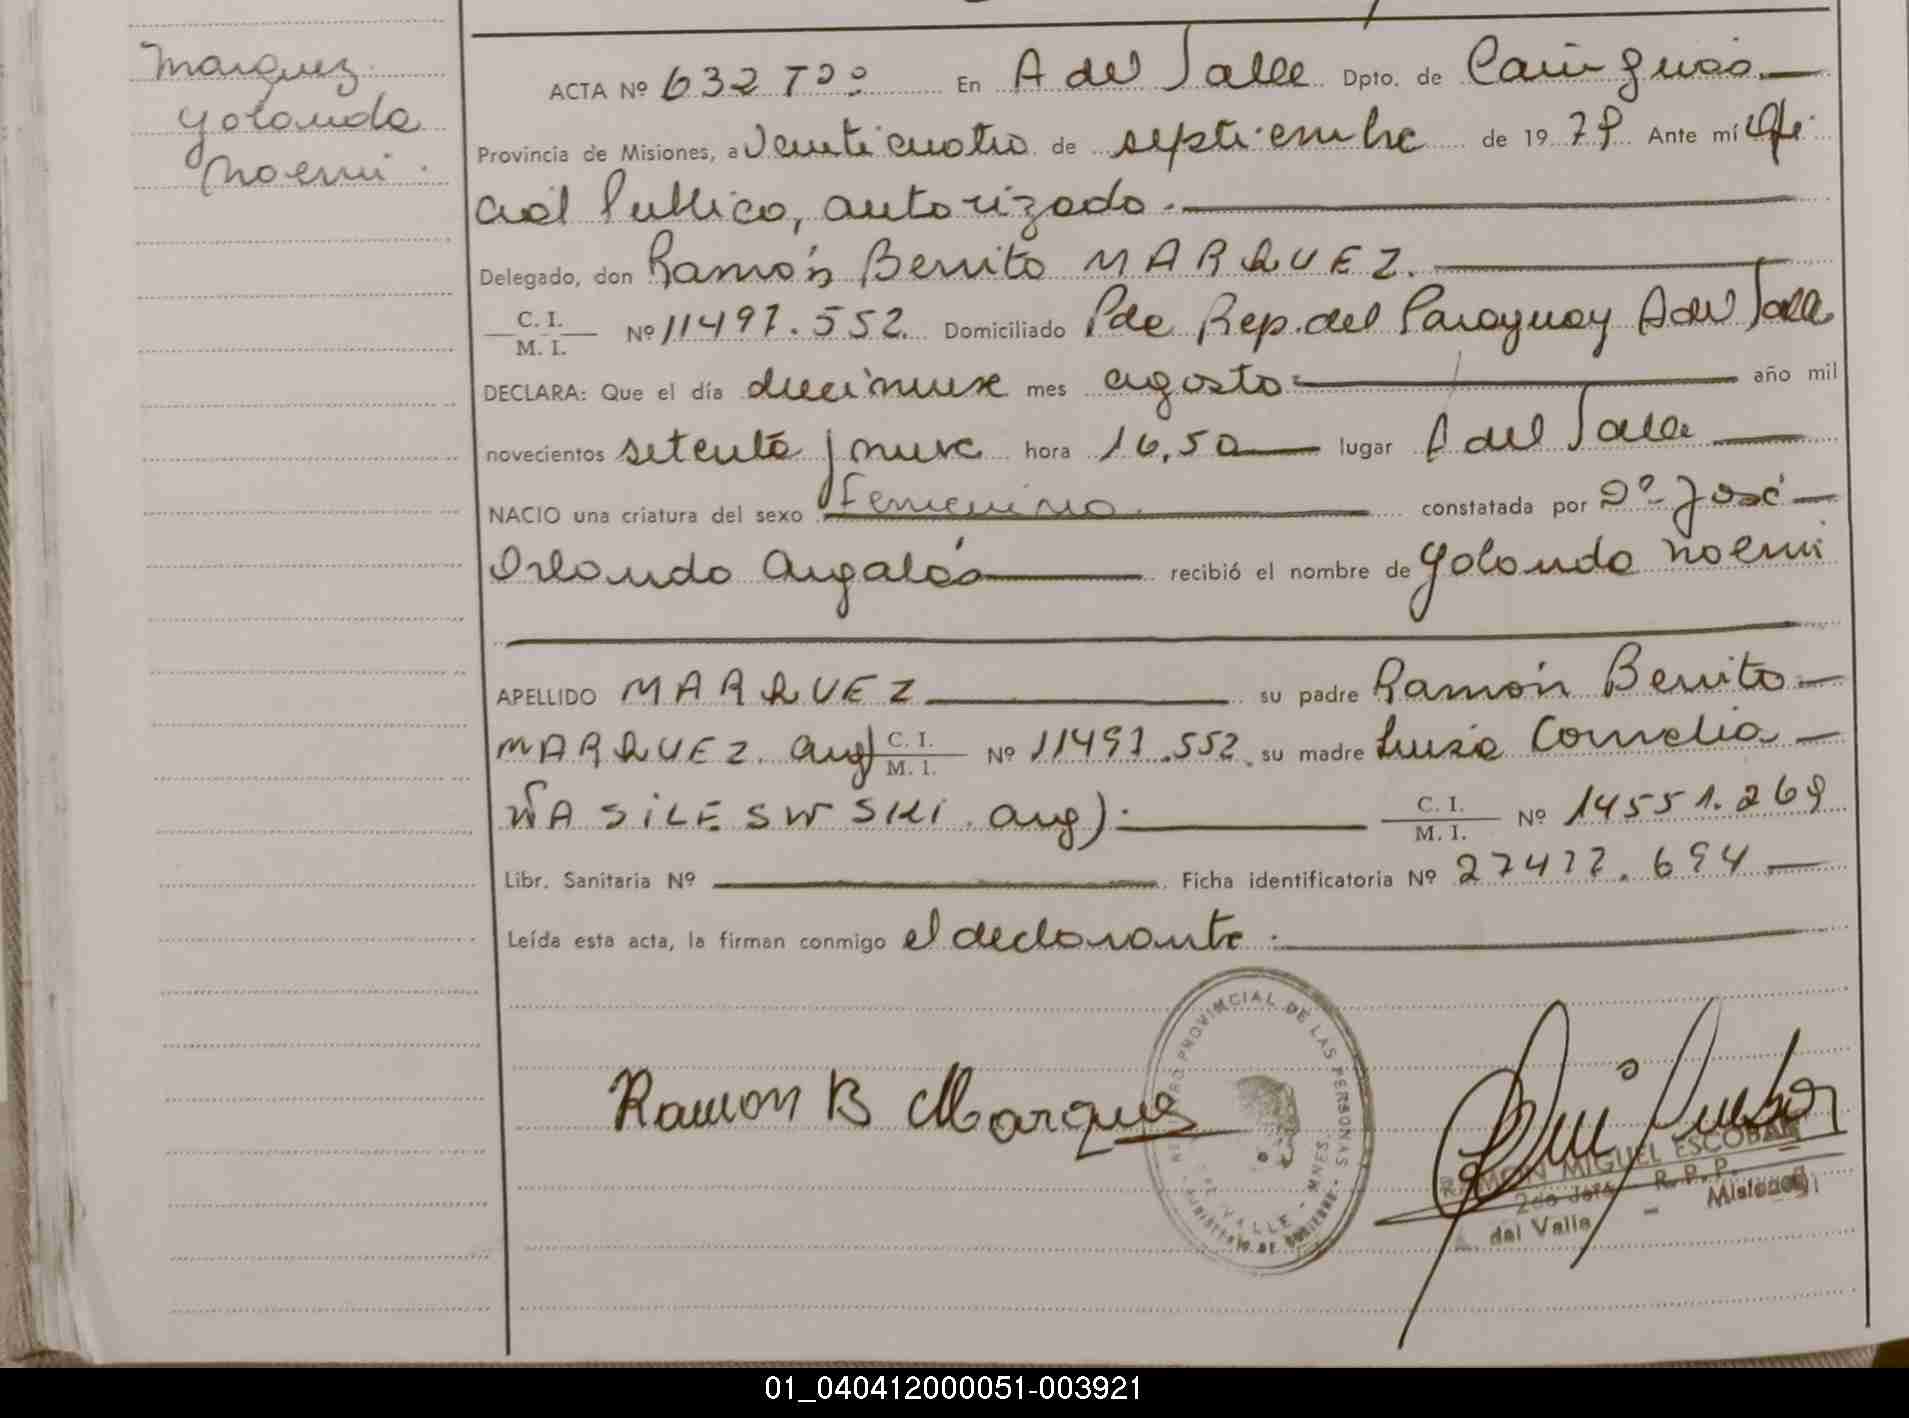 Marquez
Yolanda
Noemi.
ACTA Nº 632 Tº En A del Valle Dpto. de Cainguás.
Provincia de Misiones, a Veinticuatro de septiembre de 1979 Ante mí Ofi-
cial Publico, autorizado.
Delegado, don Ramón Benito MARQUEZ.
C. I.
M. I. Nº 11491.552. Domiciliado Pde Rep. del Paraguay A del Valle
DECLARA: Que el día diecinueve mes agosto año mil
novecientos setenta y nueve hora 16,50 lugar A del Valle
NACIO una criatura del sexo femenino. constatada por Dº José
Orlando recibió el nombre de Yolanda Noemi
APELLIDO MARQUEZ su padre Ramón Benito
MARQUEZ. arg) C. I. M. I. Nº 11491.552. su madre Luisa Cornelia
WASILESWSKI. arg). C. I. M. I. Nº 14551.269
Libr. Sanitaria Nº Ficha identificatoria Nº 27477.694
Leída esta acta, la firman conmigo el declarante.
Ramon B Marquez
REGISTRO PROVINCIAL DE LAS PERSONAS
MINISTERIO DE GOBIERNO
DEL VALLE - MNES.
RAMON MIGUEL ESCOBAR
2do Jefe R. P. P.
A. del Valle - Misiones
01_040412000051-003921